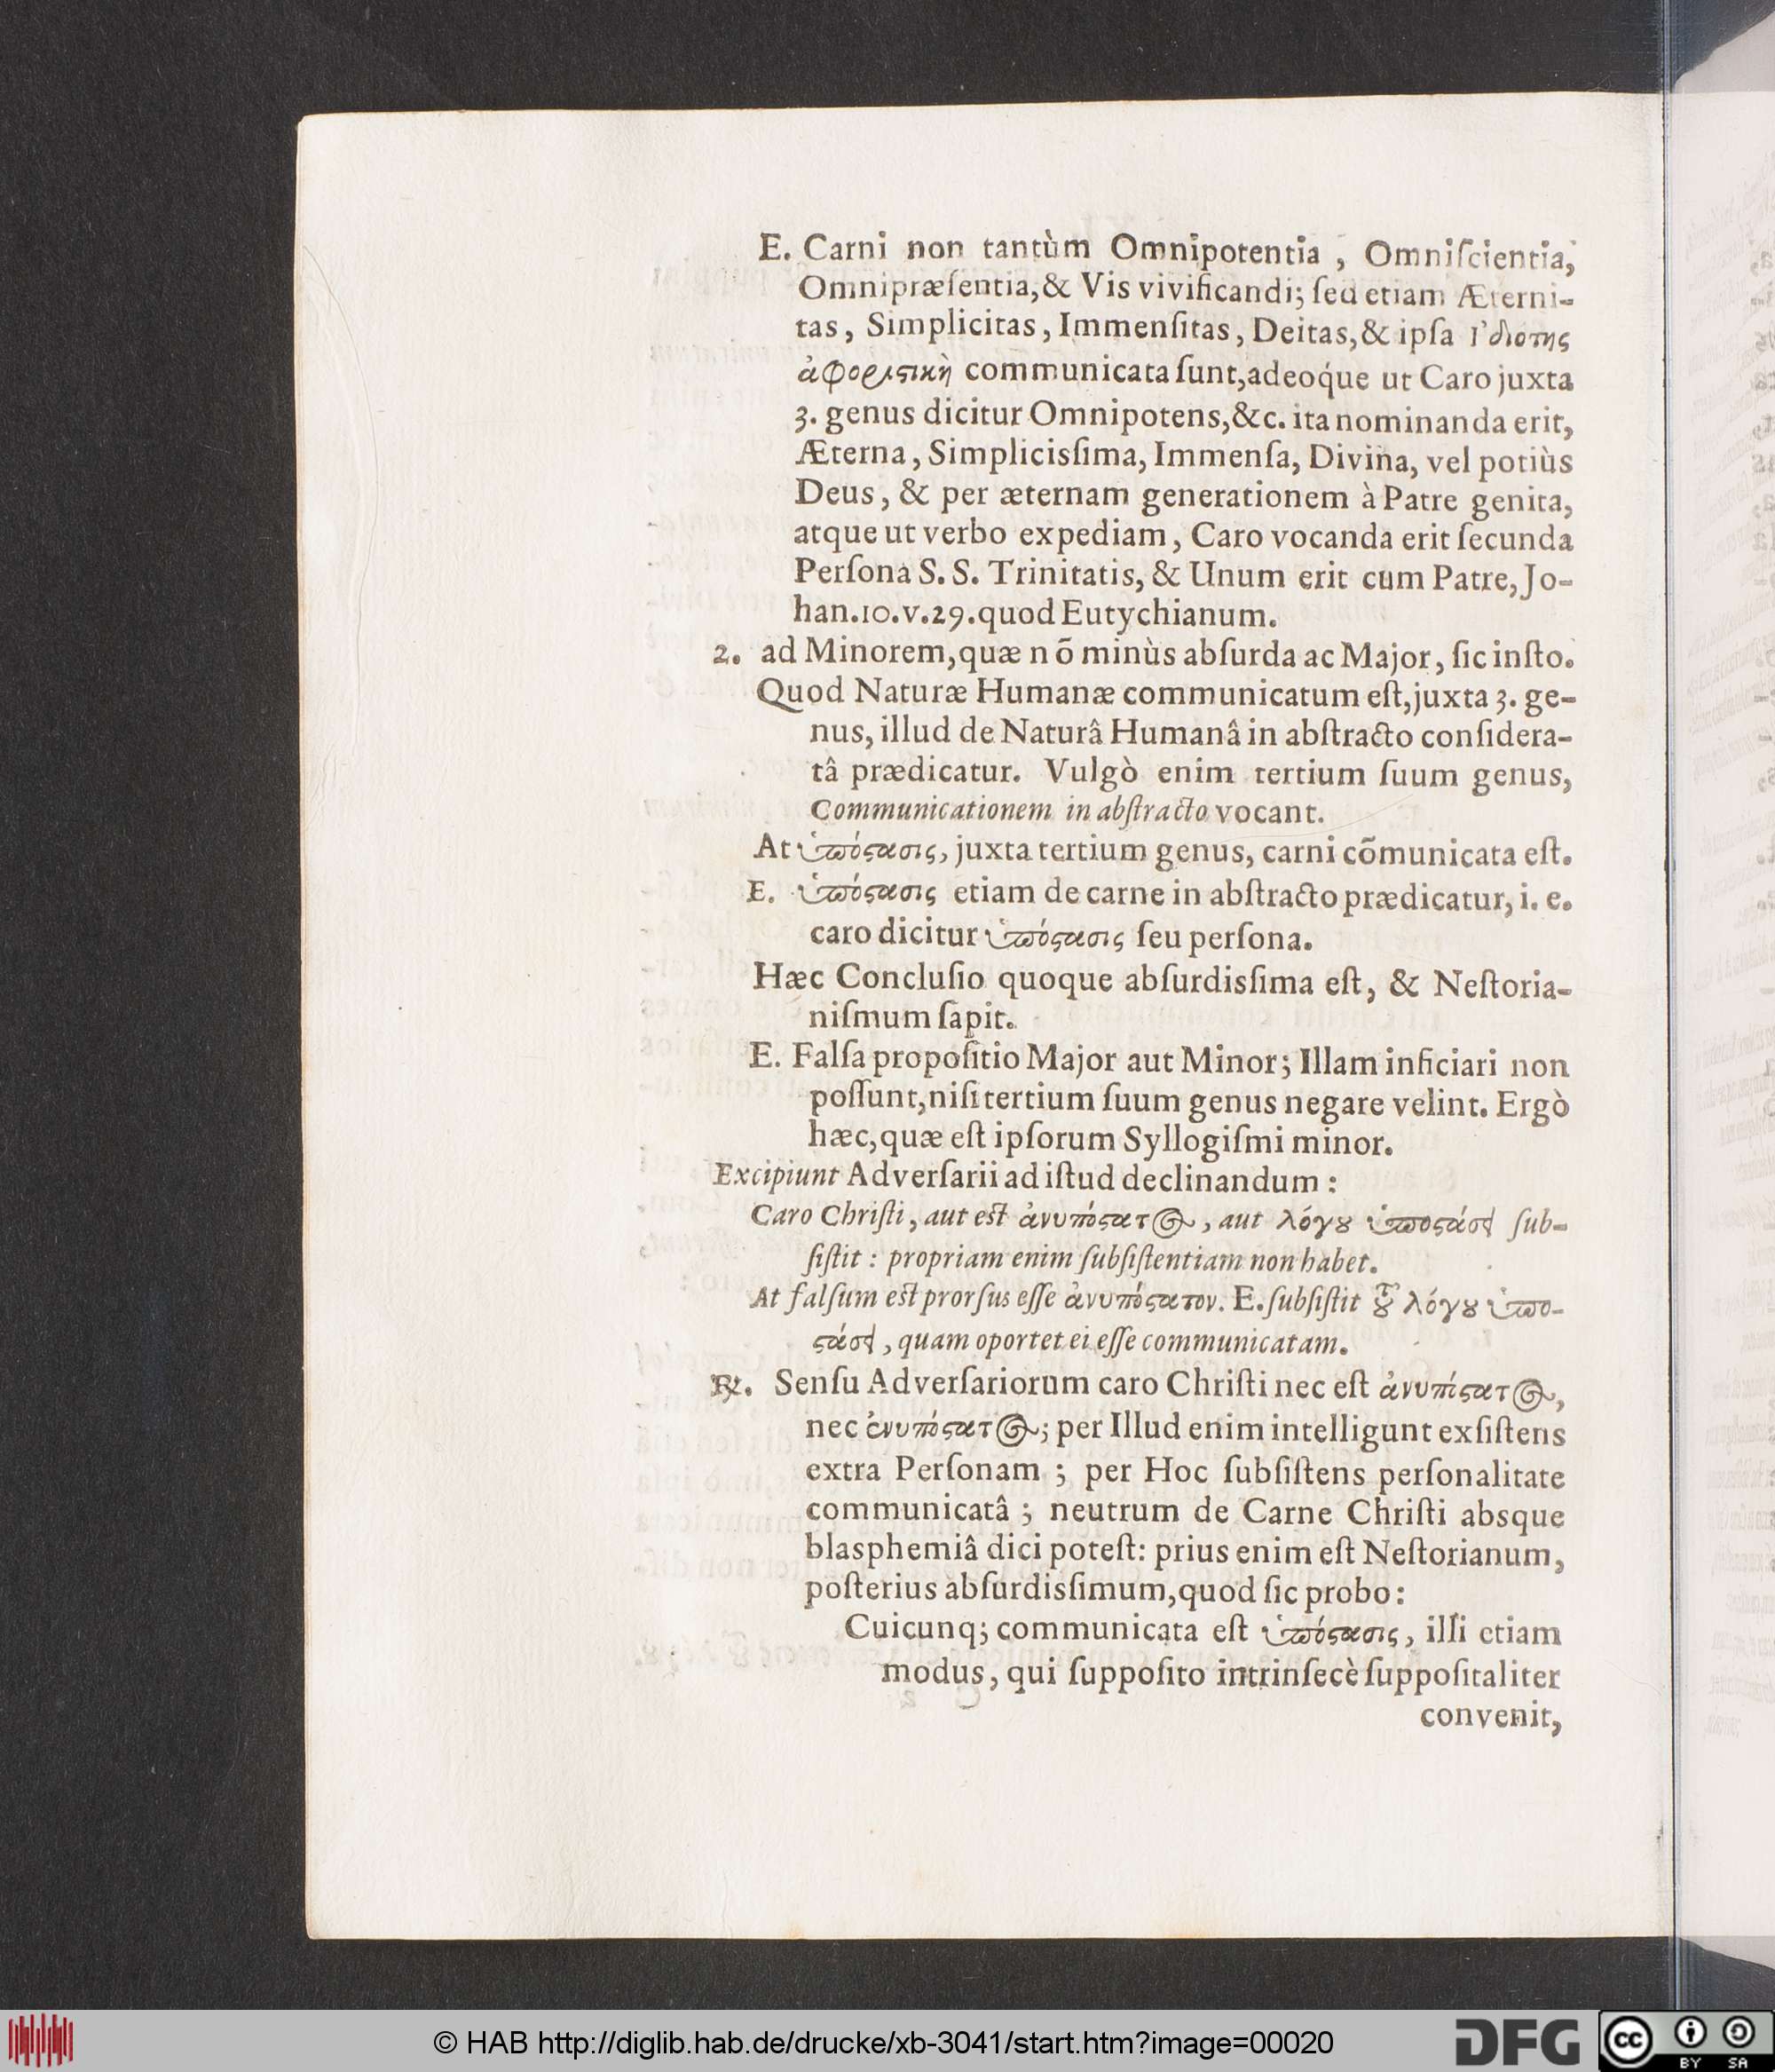 E. Carni non tantùm Omnipotentia, Omniſcientia,
Omnipræſentia,& Vis vivificandi; ſed etiam Æterni-
tas, Simplicitas, Immenſitas, Deitas,& ipſa ἰδιοτης
ἀφοριϛικὴ communicata ſunt,adeoq́ue ut Caro juxta
3. genus dicitur Omnipotens,&c. ita nominanda erit,
Æterna, Simplicisſima, Immenſa, Divina, vel potiùs
Deus, & per æternam generationem à Patre genita,
atque ut verbo expediam, Caro vocanda erit ſecunda
Perſona S. S. Trinitatis, & Unum erit cum Patre, Jo-
han.10.v.29.quod Eutychianum.
2. ad Minorem,quæ nõ minùs abſurda ac Major, ſic inſto.
Quod Naturæ Humanæ communicatum eſt,juxta 3. ge-
nus, illud de Naturâ Humanâ in abſtracto conſidera-
tâ prædicatur. Vulgò enim tertium ſuum genus,
Communicationem in abſtracto vocant.
At ὑπόϛασις, juxta tertium genus, carni cõmunicata eſt.
E. ὑπόϛασις etiam de carne in abſtracto prædicatur, i. e.
caro dicitur ὑπόϛασις ſeu perſona.
Hæc Concluſio quoque abſurdisſima eſt, & Neſtoria-
niſmum ſapit.
E. Falſa propoſitio Major aut Minor; Illam inficiari non
poſſunt,niſi tertium ſuum genus negare velint. Ergò
hæc,quæ eſt ipſorum Syllogiſmi minor.
Excipiunt Adverſarii ad iſtud declinandum:
Caro Chriſti, aut eſt ἀνυπόϛατος, aut λόγȣ ὑποϛάσει ſub-
ſiſtit: propriam enim ſubſiſtentiam non habet.
At falſum eſt prorſus eſſe ἀνυπόϛατον. E. ſubſiſtit τȣ͂ λόγȣ ὑπο-
ϛάσει, quam oportet ei eſſe communicatam.
℞. Senſu Adverſariorum caro Chriſti nec eſt ἀνυπόϛατος,
nec ἐνυπόϛατος; per Illud enim intelligunt exſiſtens
extra Perſonam; per Hoc ſubſiſtens perſonalitate
communicatâ; neutrum de Carne Chriſti absque
blasphemiâ dici poteſt: prius enim eſt Neſtorianum,
poſterius abſurdisſimum,quod ſic probo:
Cuicunq; communicata eſt ὑπόϛασις, illi etiam
modus, qui ſuppoſito intrinſecè ſuppoſitaliter
convenit,
© HAB http://diglib.hab.de/drucke/xb-3041/start.htm?image=00020
DFG
cc
BY SA